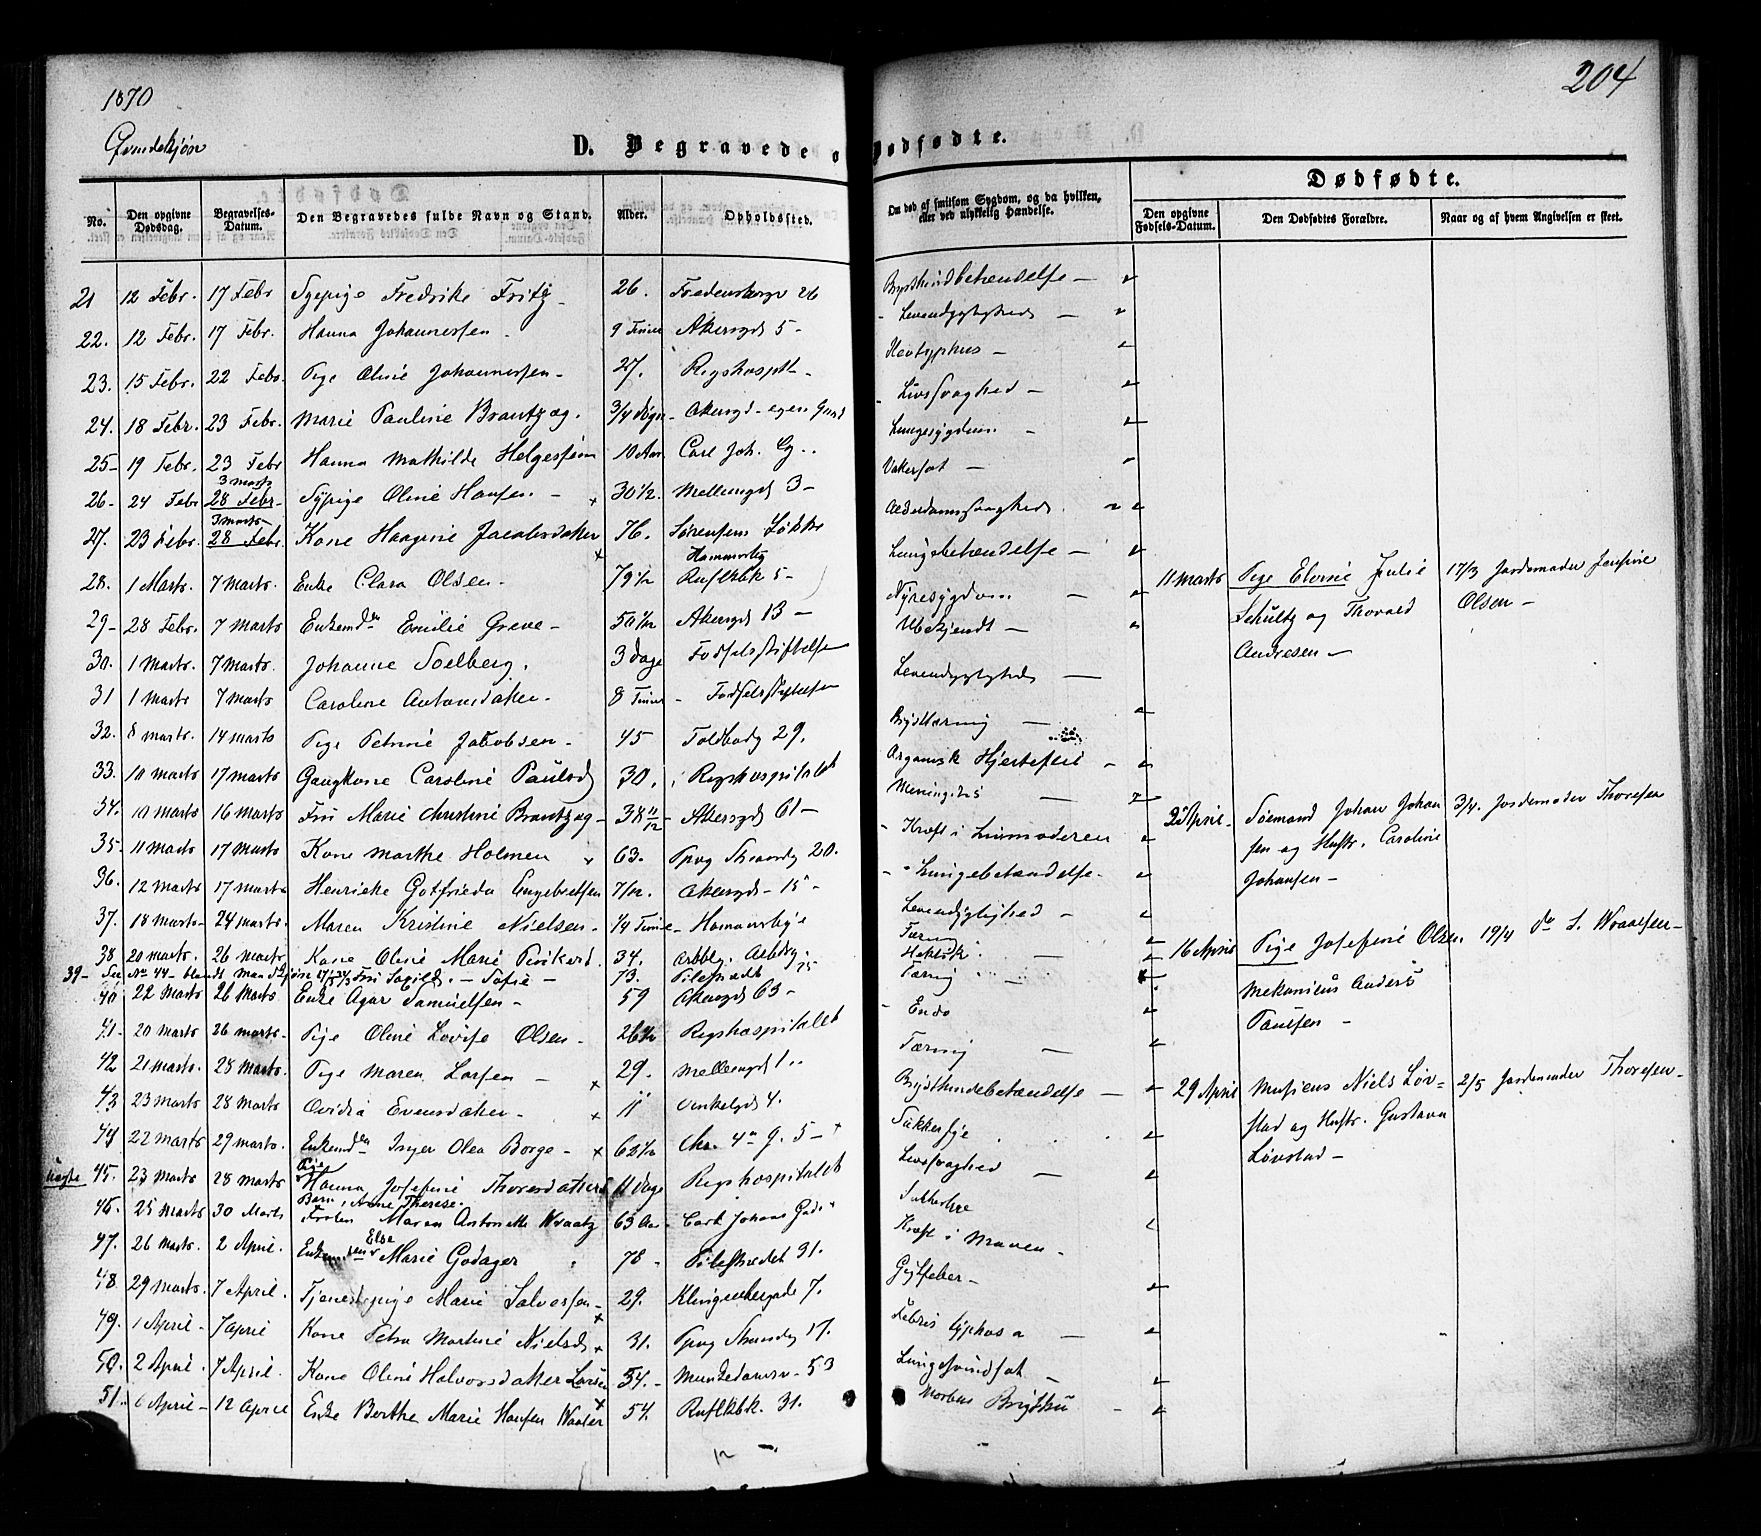 1870
204
Qvindekjøn
D. Begravede o
Dødfødte.
No.
Den opgivne Dødsdag.
Begravelses-Datum.
Den Begravedes fulde Navn og Stand.
Alder.
Opholdssted.
Om død af smitsom Sygdom, og da hvilken, eller ved ulykkelig Hændelse.
Dødfødte.
Den opgivne Fødsels-Datum.
Den Dødfødtes Forældre.
Naar og af hvem Angivelsen er skeet.
21 12 Febr. 17 Febr Sypige Fredrike Fritz 26. Fredensborgv 26
22. 12 Febr. 17 Febr. Hanna Johannessen 9 Timer Akersgd 5 – Levendygtighed
23. 15 Febr. 22 Febr. Pige Oline Johannessen 27. Rigshospit. Nevtyphus
24. 18 Febr. 23 Febr. Marie Pauline Brantzæg. 3/4 Døgn Akersgd – egen Gaard Livssvaghed
25 – 19 Febr. 23 Febr Hanna Mathilde 10 Aar Carl Joh. G. Lungesygdom
3 marts
26 – 24 Febr 28 Febr Sypige Oline Hansen. x 30 1/2. Mellemgd 3 –
3 marts
27. 23 Febr. 28 Febr. Kone Haagine Jacobsdatter x 76. Sørensens Løkke Alderdomssvaghed
Hammersbg
28. 1 Marts 7 Marts Enke Clara Olsen 79 1/2 Rusløkbk 5 – Lungebetændelse
29 – 28 Febr. 7 Marts Enkemden Emilie Greve 50 1/12 Akersgd 13 – Nyresygdom
30. 1 Marts 7 Marts. Johanne Soelberg. 3 Dage Fødselsstiftelsen Ubekjendt
31 1 Marts 7 Marts Caroline Antonsdatter. 8 Timer Fødselsstiftelsen Levendygtighed
32. 8 marts. 14 marts Pige Petrine Jakobsen 45 Toldbodg 29. Brysttæring
33. 10 Marts 17 marts Gangkone Caroline Paulsd 30. Rigshospitalet Organisk Hjertefeil
34. 10 Marts 16 Marts Fru Marie Christine Brantzæg 38 11/12 Akersgd 61 – Meningitis
35 – 11 Marts 17 Marts Kone Marthe Holmen 63. Tpvg Strandg 20. Kræft i Livmoderen
36. 12 Marts 17 Marts Henrikke Gotfrieda Engebretsen 7/12. Akersgd – 15 – Lungebetændelse
37. 18 Marts 24 Marts. Maren Kristine Nielsen 1/4 Time Homansby Levendygtighed
38 20 marts. 26 marts. Kone Oline Marie 34. Tæring
39 – See No 44 – blandt Mandkjøn 73. Pilestrædet
40 22 Marts 26 Marts Enke Agar Samuelsen – 59 Akersgd 63 – Tæring
41 – 20 Marts 26 marts Pige Oline Lovise Olsen 26 1/2 Rigshospitalet Endo
42 21 marts. 28 Marts. Pige Maren Larsen x 29. Mellemgd 1 Tæring
43 23 Marts 28 Marts Ovidia Evensdatter x 11 Vinkelgd 4. Brysthindebetændelse
44 22 marts 29 marts. Enkemden Inger Olea Borge x 62 1/2 Chr. 4de G. 5 – Sukkersyge
uægte 45. 23 Marts 28 Marts Pige Hanna Josefine Thoresdatters 11 Dage Rigshospitalet Livssvaghed
Barn, Anne Therese.
46. 25 Marts 30 Marts Frøken Maren Antonette Kraatz 63 Aar Carl Johans Gade
Else
47. 26 Marts. 2 April. Enkemden Marie Godager 78 – Pilestrædet 31. Kræft i Maven
48. 29 Marts. 7 April. Tjenestepige Marie Salvesen x 29. Klingenberggade 7. Gigtfeber
49. 1 April 7 April Kone Petra Martine Nielsd 31. Tpvg Strandg 17. Febris typhosa
50. 2 April. 7 April. Kone Oline Halvorsdatter Larsen 34. – Munkedamsv – 53 Lungesvindsot
51. 6 April 12 April Enke Berthe Marie Hansen Waaler x 54. Rusløkbk. 31. Morbus Brightii
11 Marts Pige Elvine Julie 17/3 Jordemoder Josefine
Schultz og Thorvald Olsen –
Andresen –
2 April – Sømand Johan Johan 3/4. Jordemoder Thoresen
sen og Hustr. Caroline
Johansen –
16 April Pige Josefine Olsen. 19/4 do
Mekanicus Anders
Paulsen –
29 April Musicus Niels Løv– 2/5 Jordemoder Thoresen –
stad og Hustr. Gustava
Løvstad –